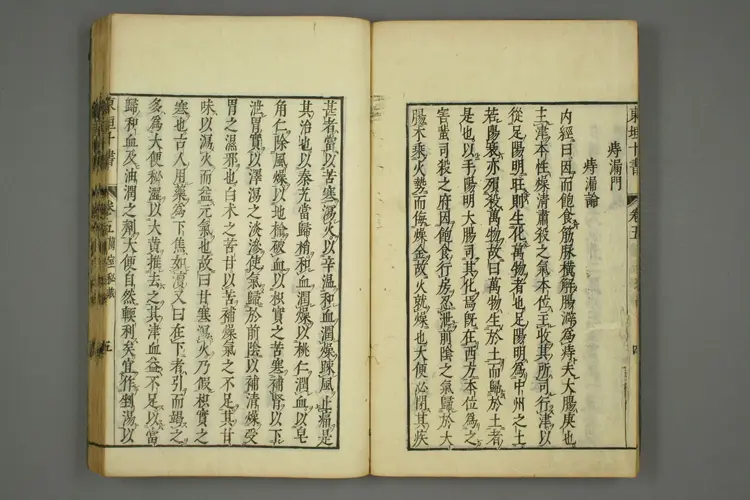 東垣十書
卷五
四
痔漏門
痔漏論
內經曰因而飽食筋脉橫解腸澼為痔夫大腸庚也
主津本性燥清肅殺之氣本位主收其所司行津以
從足陽明旺則生化萬物者也足陽明為中州之土
若陽衰亦殞殺萬物故曰萬物生於土而歸於土者
是也以手陽明大腸司其化焉既在西方本位為之
害蜚司殺之府因飽食行房忍泄前陰之氣歸於大
腸木乘火勢而侮燥金故火就燥也大便必閉其疾
甚者當以苦寒瀉火以辛溫和血潤燥疎風止痛是
其治也以秦艽當歸梢和血潤燥以桃仁潤血以皂
角仁除風燥以地榆破血以枳實之苦寒補腎以下
泄胃實以澤瀉之淡滲使氣歸於前陰以補清燥受
胃之濕邪也白术之苦甘以苦補燥氣之不足其甘
味以瀉火而益元氣也故曰甘寒瀉火乃假枳實之
寒也古人用藥為下焦如瀆又曰在下者引而竭之
多為大便秘澀以大黄推去之其津血益不足以當
歸和血及油潤之劑大便自然軟利矣宜作剉湯以
東垣十書
卷五蘭室秘藏
五